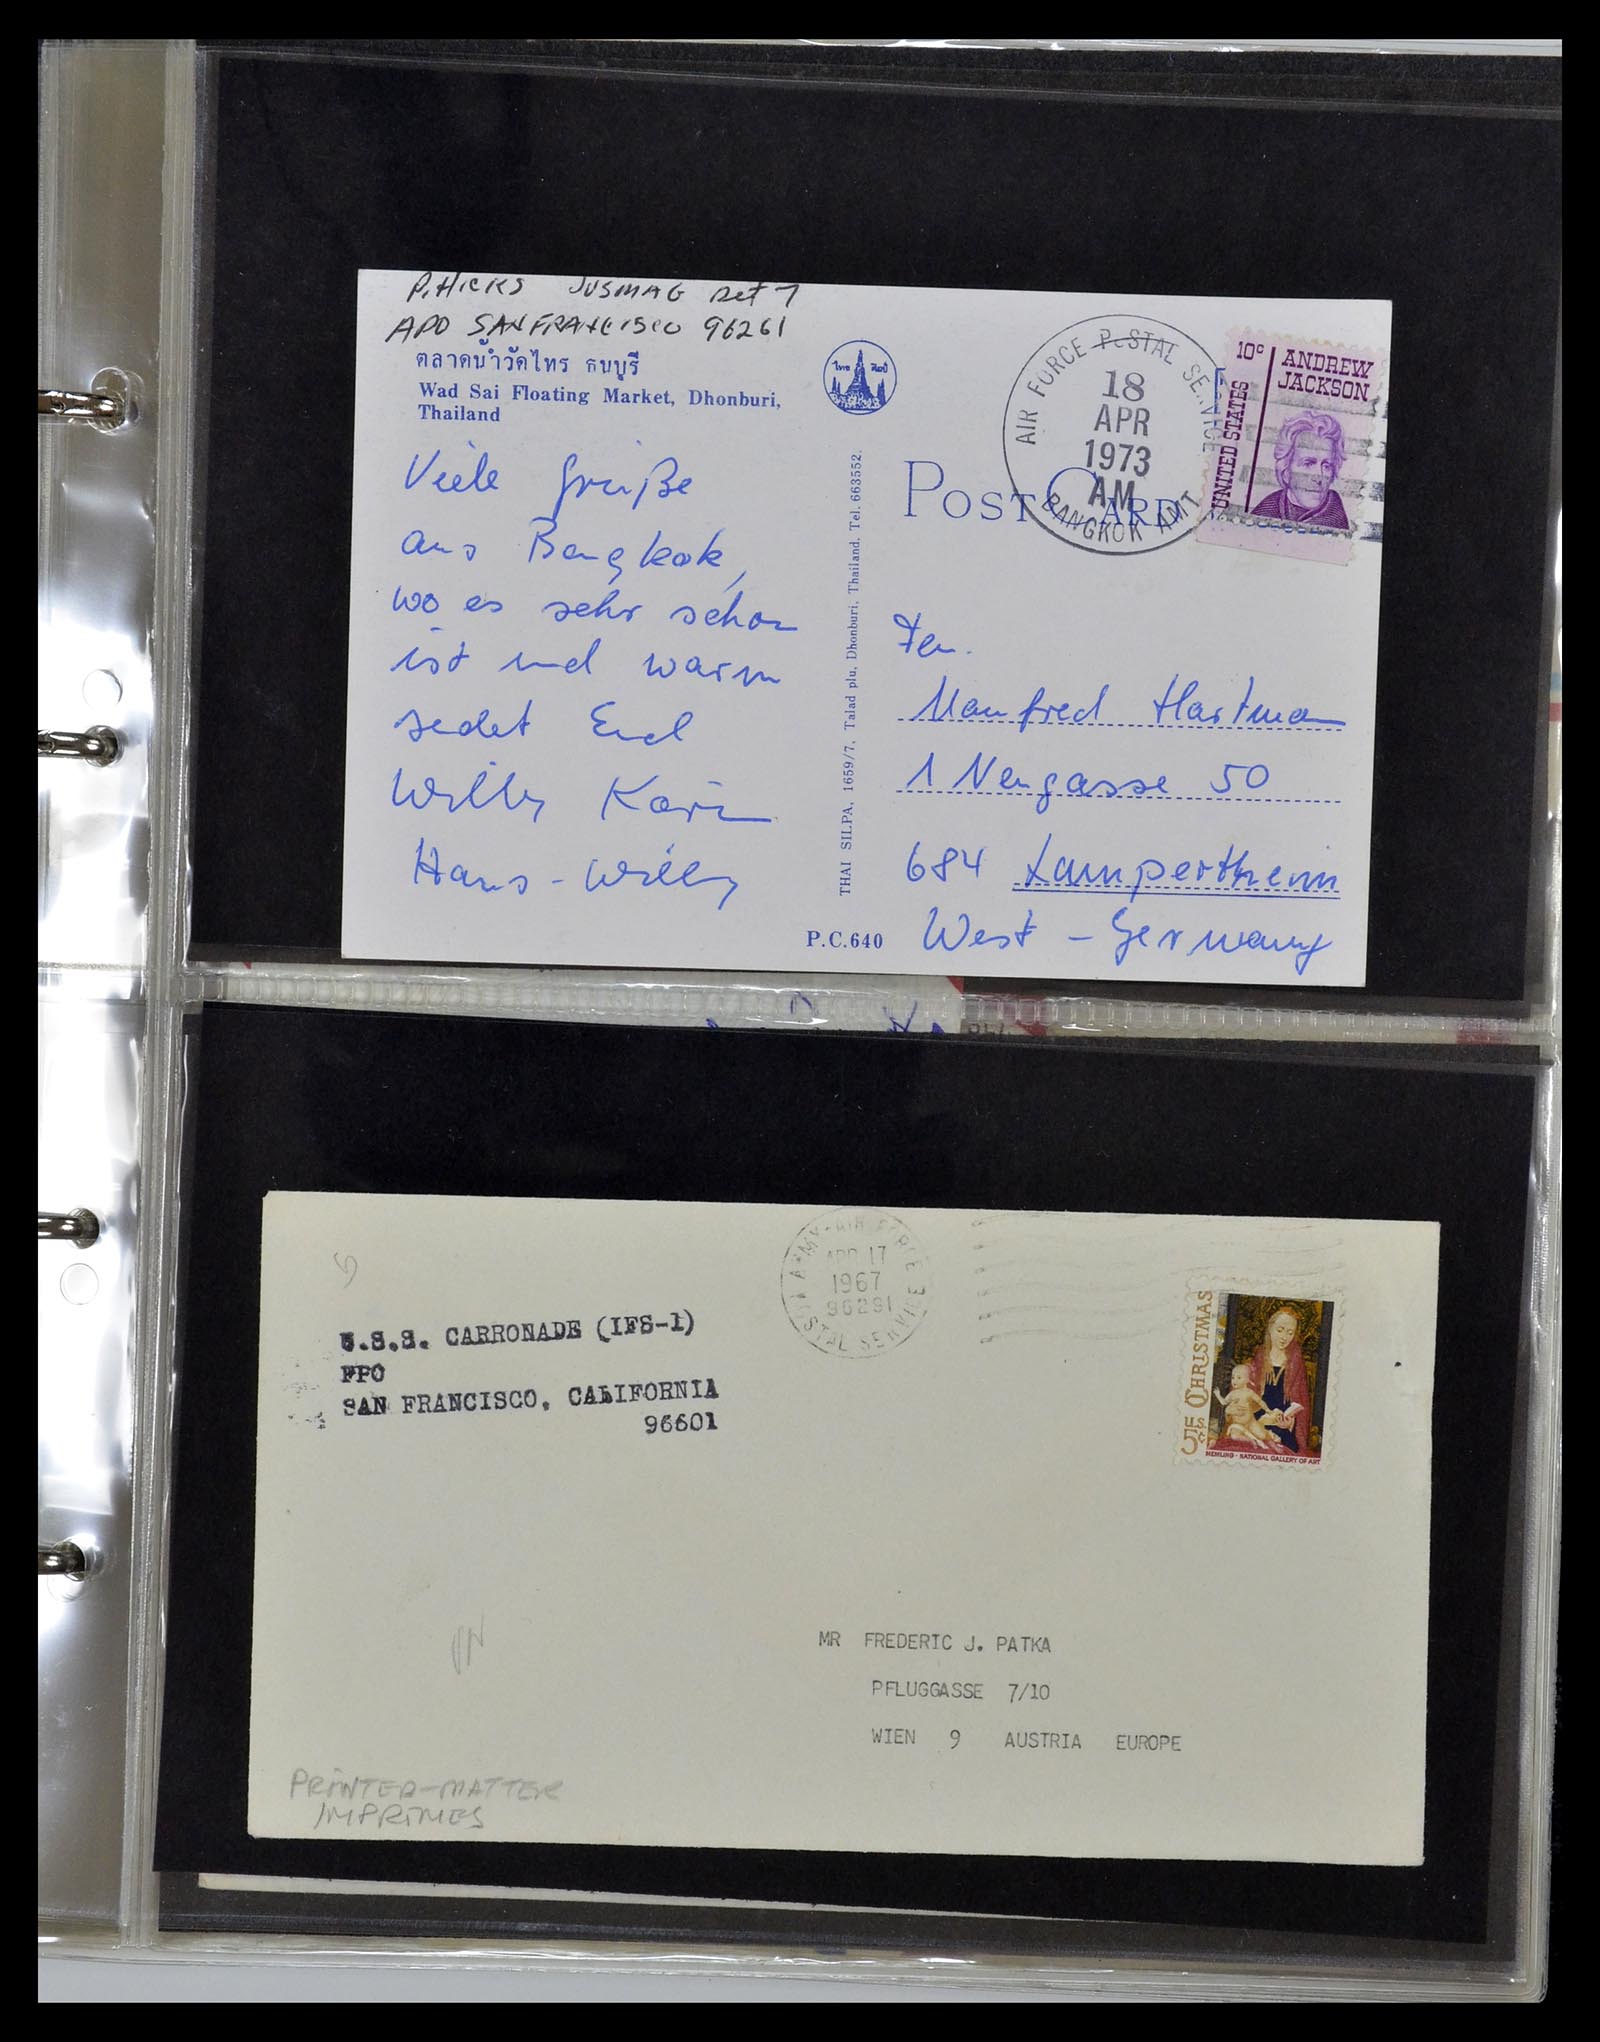 P. HICKS JUSMAG Det 7
APO SAN FRANCISCO 96261
ตลาดน้ำวัดไทร ธนบุรี
Wad Sai Floating Market, Dhonburi,
Thailand
ไทย ศิลป์
Viele Grüße
aus Bangkok,
wo es sehr schön
ist und warm
sedet Euch
Willy Karin
Hans-Willy
THAI SILPA, 1659/7, Talad plu, Dhonburi, Thailand. Tel. 663552.
P.C.640
POST CARD
AIR FORCE POSTAL SERVICE
18
APR
1973
AM
BANGKOK AMT
10c ANDREW
JACKSON
UNITED STATES
Manfred Hartman
1 Neugasse 50
684 Lampertheim
West-Germany
U.S.S. CARRONADE (IFS-1)
FPO
SAN FRANCISCO, CALIFORNIA
96601
ARMY-AIR FORCE
APR 17
1967
96291
POSTAL SERVICE
CHRISTMAS
5c U.S.
MEMLING · NATIONAL GALLERY OF ART
MR FREDERIC J. PATKA
PFLUGGASSE 7/10
WIEN 9 AUSTRIA EUROPE
PRINTED-MATTER
IMPRIMES